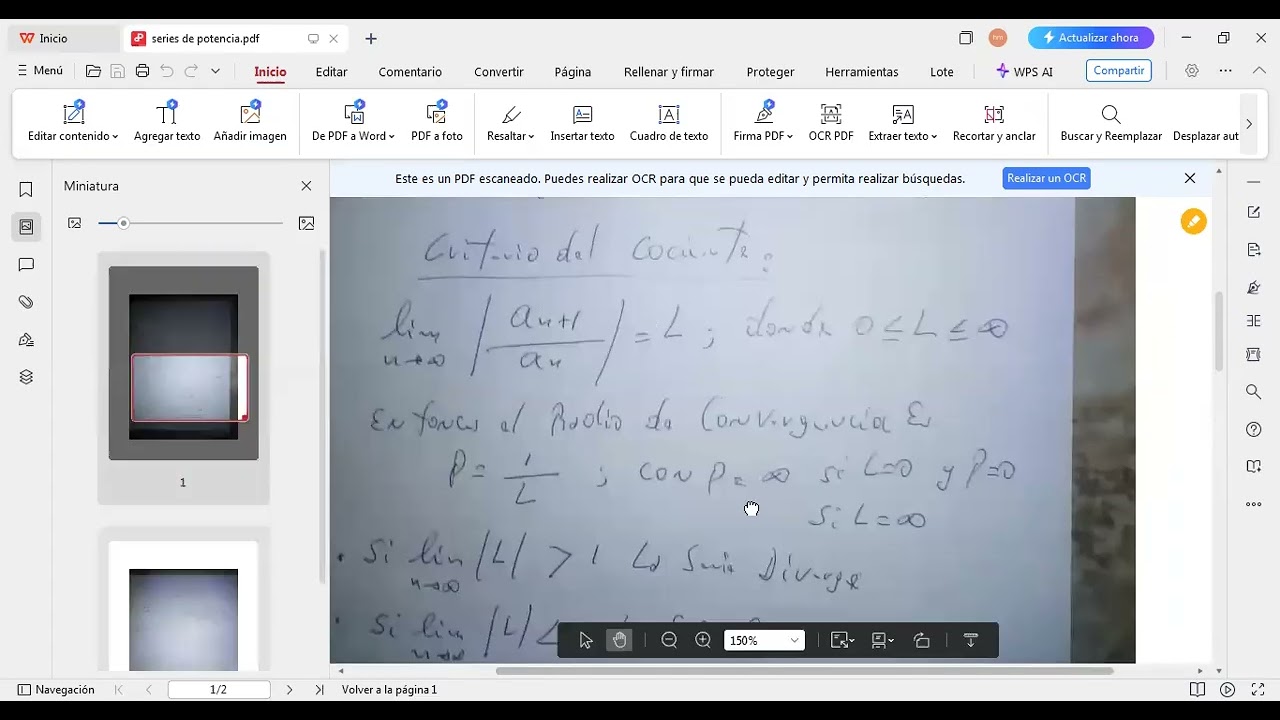 Inicio
series de potencia.pdf
Actualizar ahora
Menú
Inicio
Editar
Comentario
Convertir
Página
Rellenar y firmar
Proteger
Herramientas
Lote
WPS AI
Compartir
Editar contenido
Agregar texto
Añadir imagen
De PDF a Word
PDF a foto
Resaltar
Insertar texto
Cuadro de texto
Firma PDF
OCR PDF
Extraer texto
Recortar y anclar
Buscar y Reemplazar
Desplazar aut
Miniatura
1
Este es un PDF escaneado. Puedes realizar OCR para que se pueda editar y permita realizar búsquedas.
Realizar un OCR
Criterio del Cociente:
lim n→∞ |an+1/an| = L ; donde 0 ≤ L ≤ ∞
Entonces el Radio de Convergencia Es
P = 1/L ; con P = ∞ si L=0 y P=0
Si L=∞
• Si lim n→∞ |L| > 1 La Serie Diverge
• Si lim n→∞ |L| <
150%
Navegación
1/2
Volver a la página 1